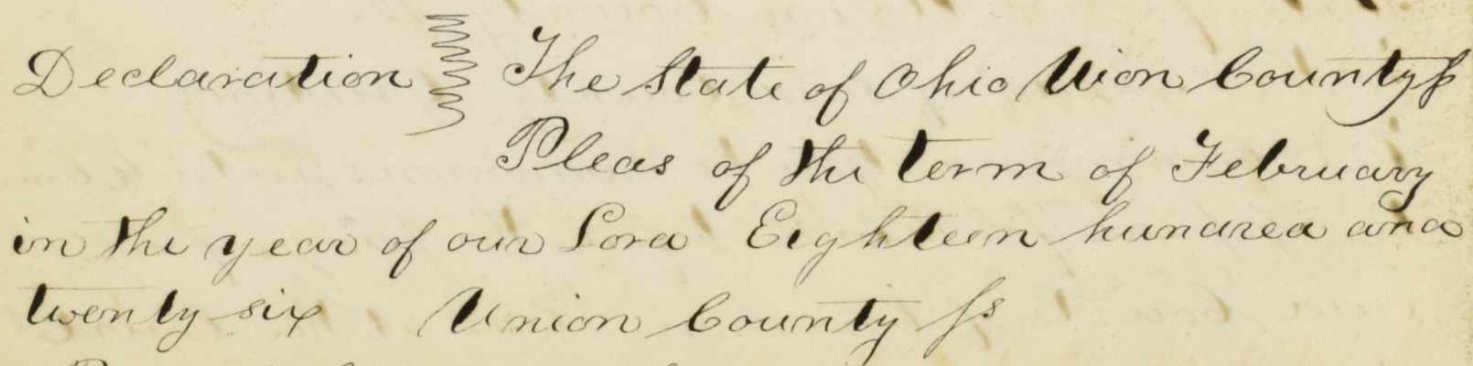 Declaration The State of Ohio Uion County ss
Pleas of the term of February
in the year of our Lord Eighteen hundred and
twenty six Union County ss